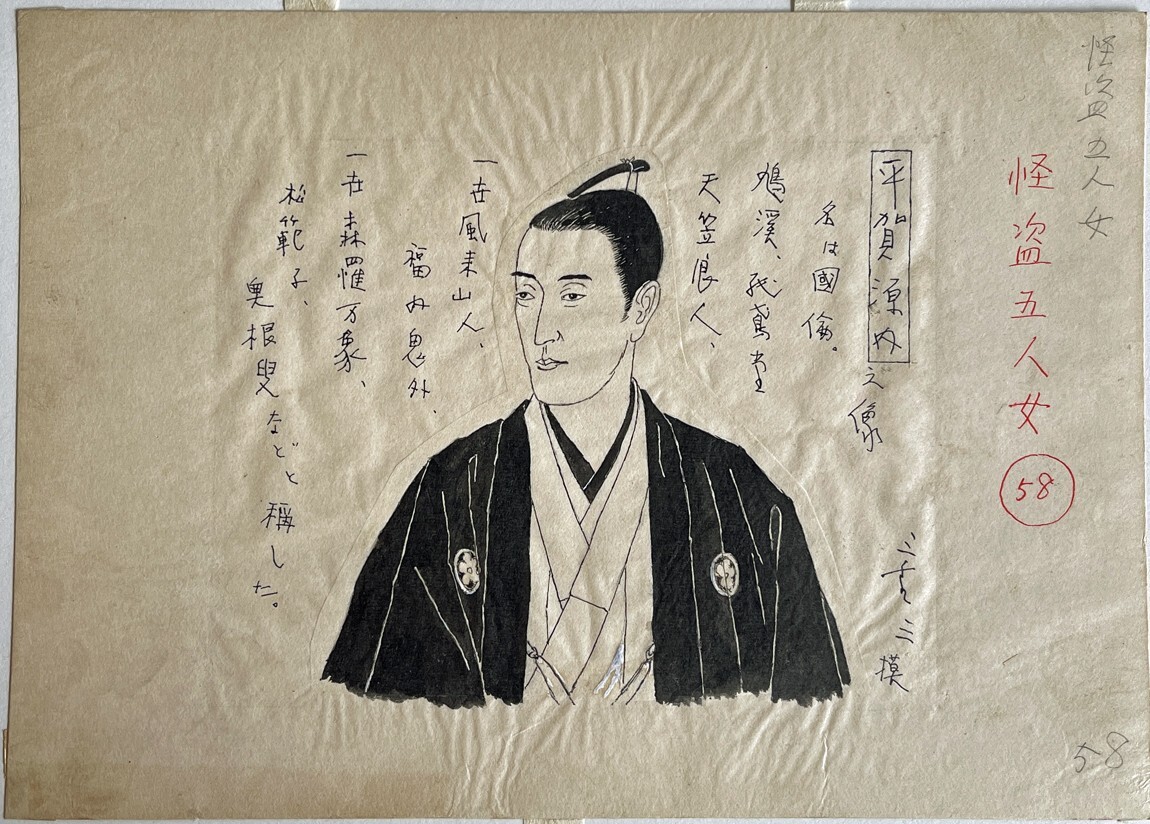 怪盗五人女
怪盗五人女
58
平賀源内之像
名は國倫。
鳩溪、
天笠浪人、
一在風来山人、
福内鬼外、
一在森羅万象、
松籟子、
無根叟などと稱した。
三 模
58